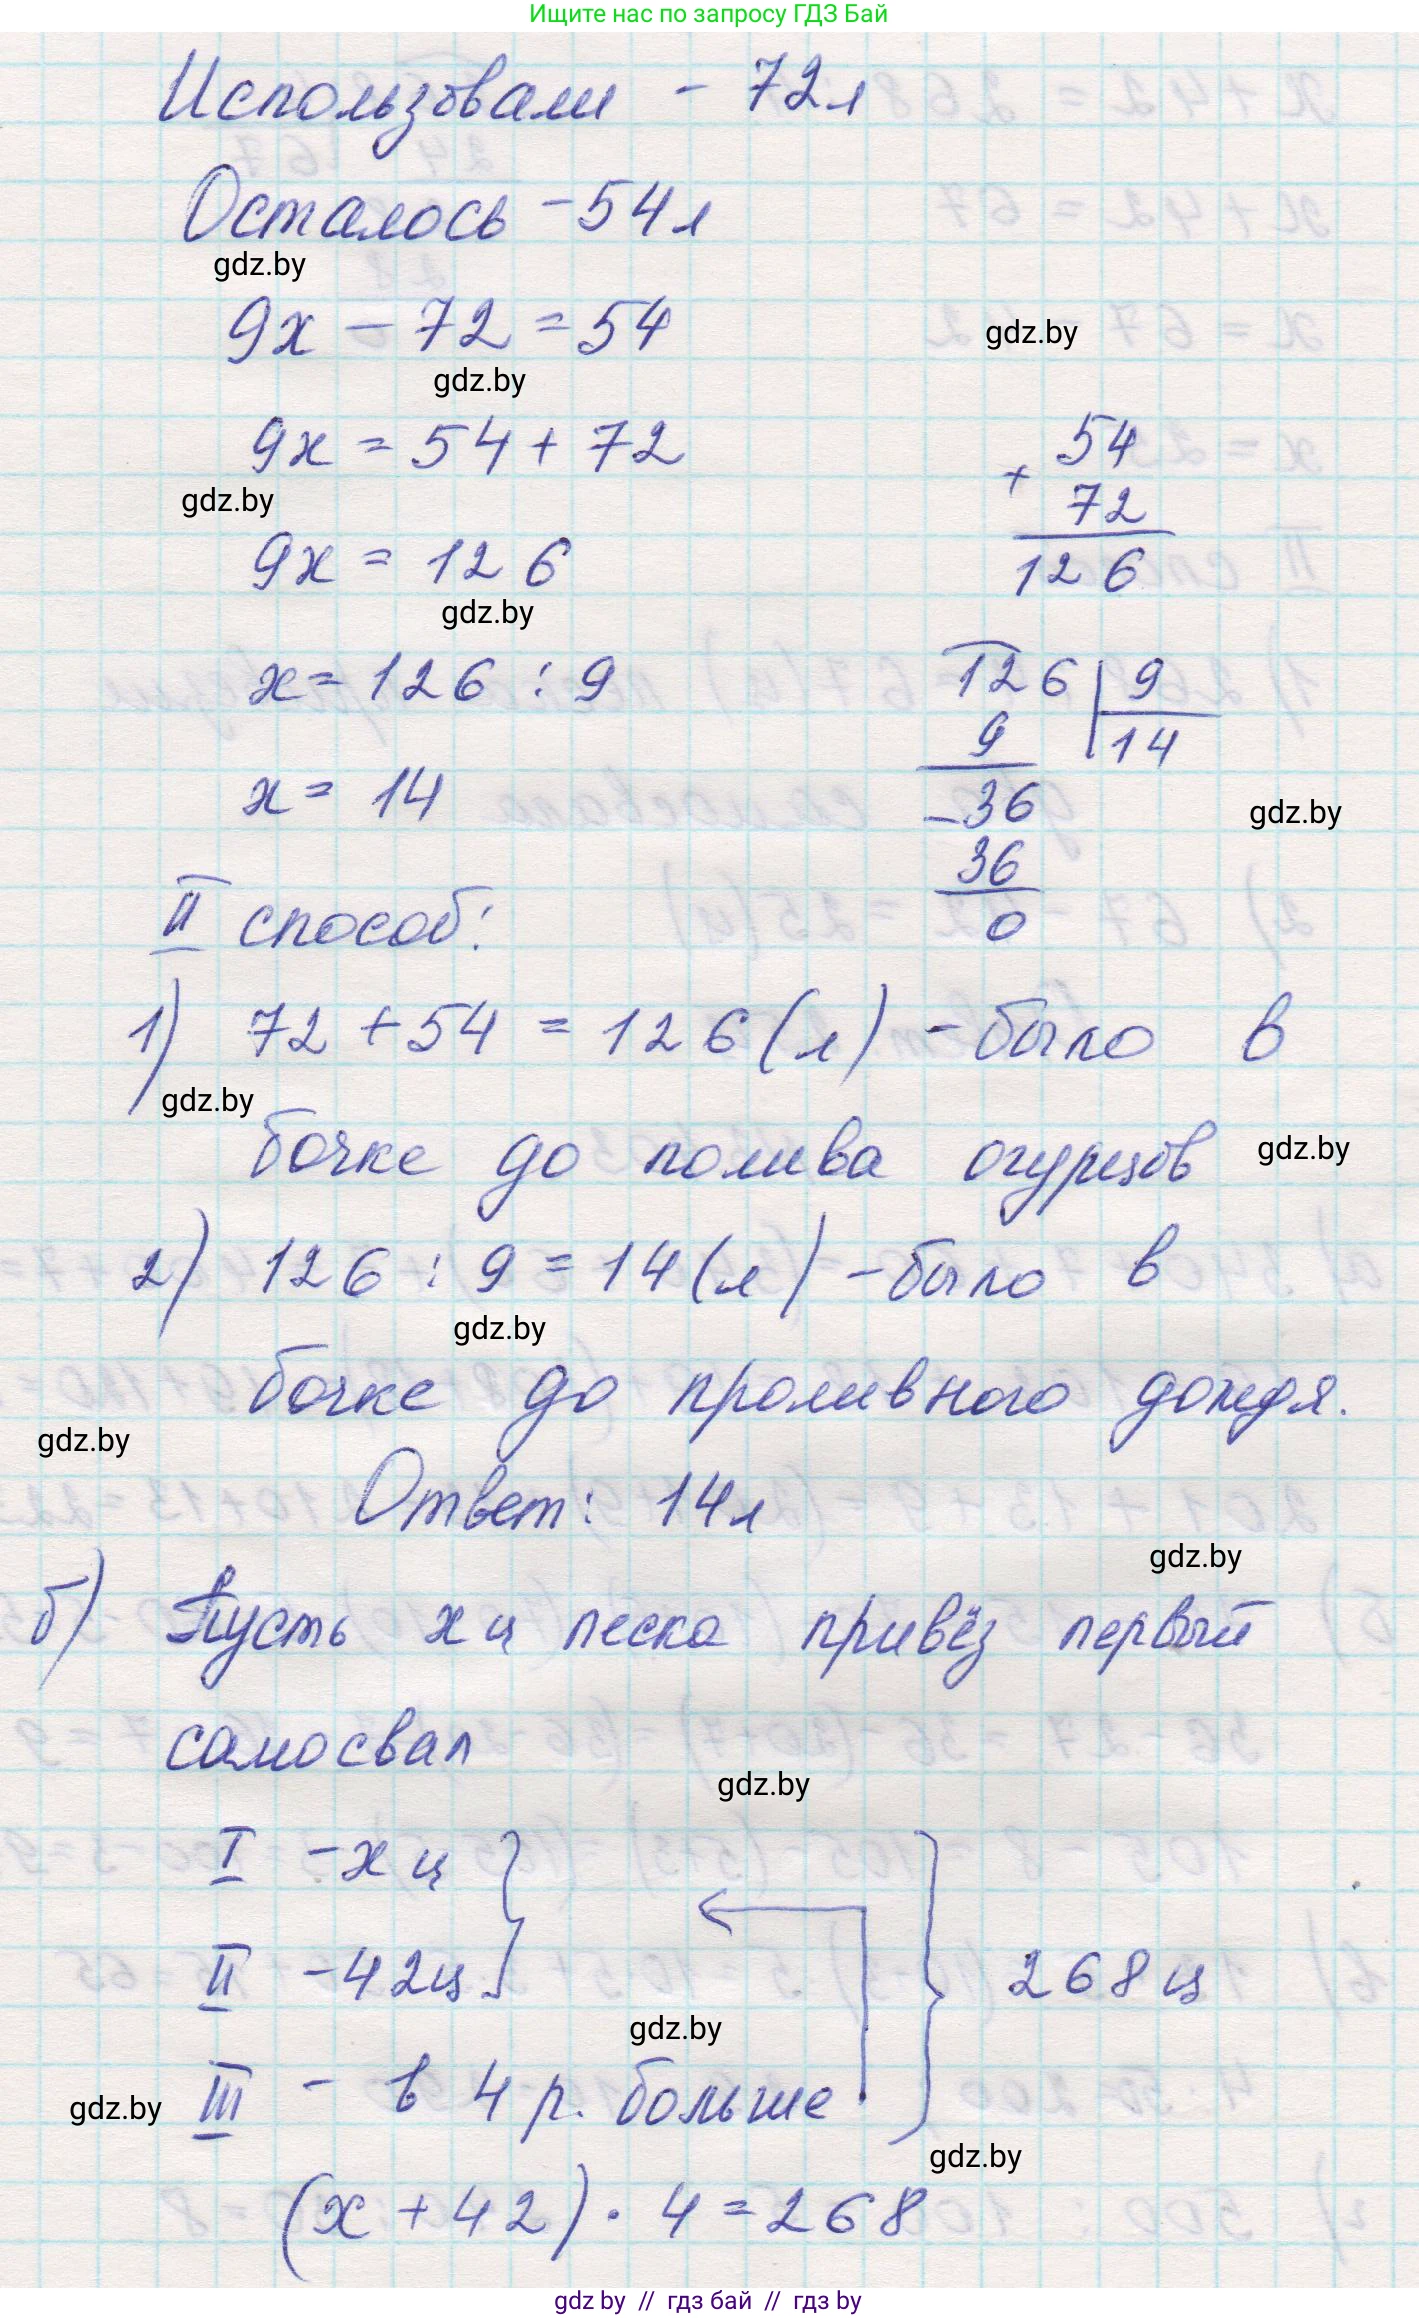 Ищите нас по запросу ГДЗ Бай
Использовали - 72л
Осталось - 54л
gdz.by
9x - 72 = 54
gdz.by
gdz.by
9x = 54 + 72
gdz.by
54
+
72
126
9x = 126
gdz.by
x = 126 : 9
126 | 9
9
14
x = 14
- 36
36
0
gdz.by
II способ:
1) 72 + 54 = 126 (л) - было в
gdz.by
бочке до полива огурцов
gdz.by
2) 126 : 9 = 14 (л) - было в
gdz.by
бочке до проливного дождя.
gdz.by
Ответ: 14л
gdz.by
б) Пусть x ц песка привёз первый
самосвал
gdz.by
I - x ц
II - 42ц
268 ц
gdz.by
III - в 4 р. больше
gdz.by
gdz.by
(x + 42) · 4 = 268
gdz by // гдз бай // гдз by